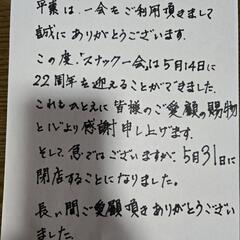 平素は、一会をご利用頂きまして
誠にありがとうございます.
この度.「スナック一会」は5月14日に
22周年を迎えることができました.
これもひとえに皆様のご愛顧の賜物
と心より感謝申し上げます.
そして急ではございますが、5月31日に
閉店することになりました.
長い間ご愛顧頂きありがとうござい
ました.